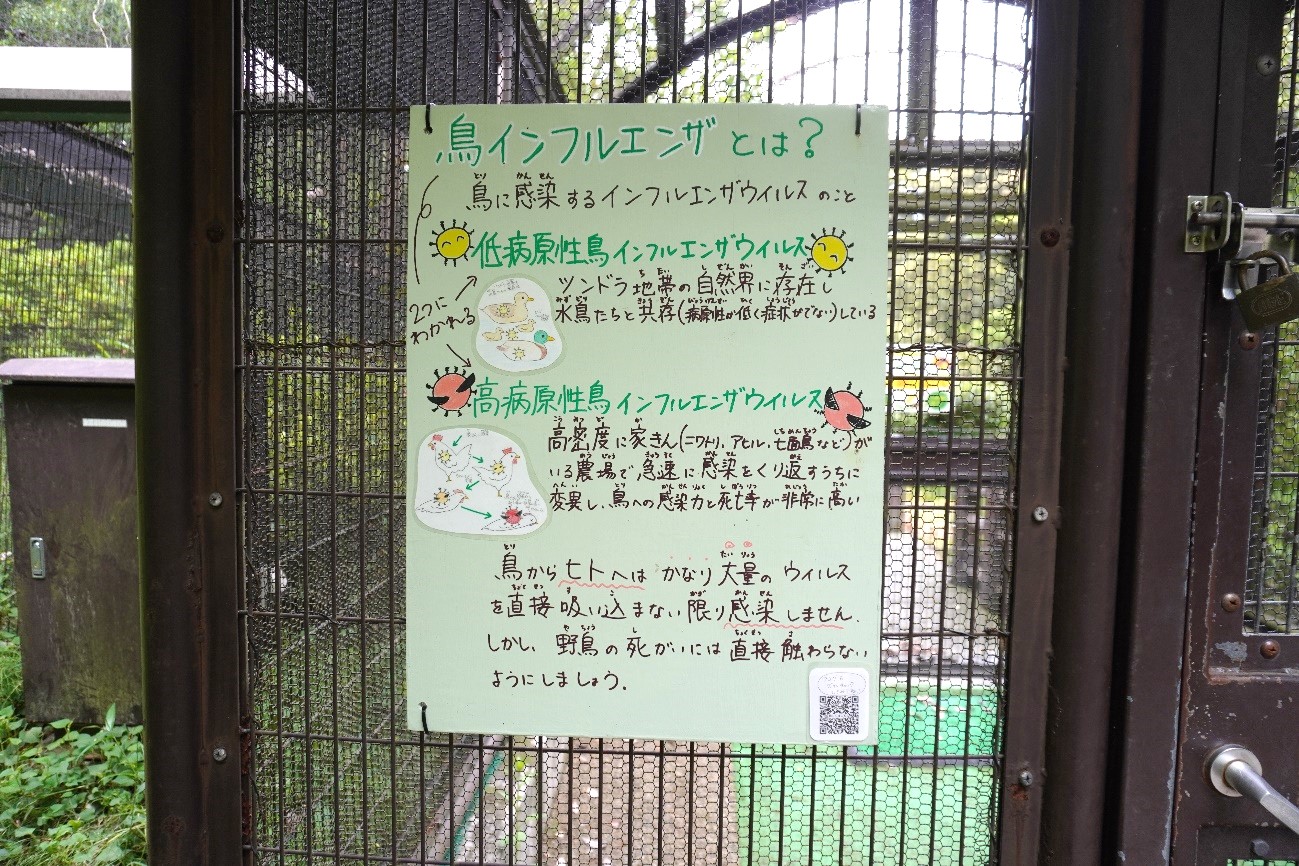 鳥インフルエンザとは?
鳥に感染するインフルエンザウイルスのこと
2つに
わかれる
低病原性鳥インフルエンザウイルス
ツンドラ地帯の自然界に存在し
水鳥たちと共存(病原性が低く症状がでない)している
高病原性鳥インフルエンザウイルス
高密度に家きん(ニワトリ、アヒル、七面鳥など)が
いる農場で急速に感染をくり返すうちに
変異し、鳥への感染力と死亡率が非常に高い
鳥からヒトへはかなり大量のウイルス
を直接吸い込まない限り感染しません.
しかし、野鳥の死がいには直接触わらない
ようにしましょう.